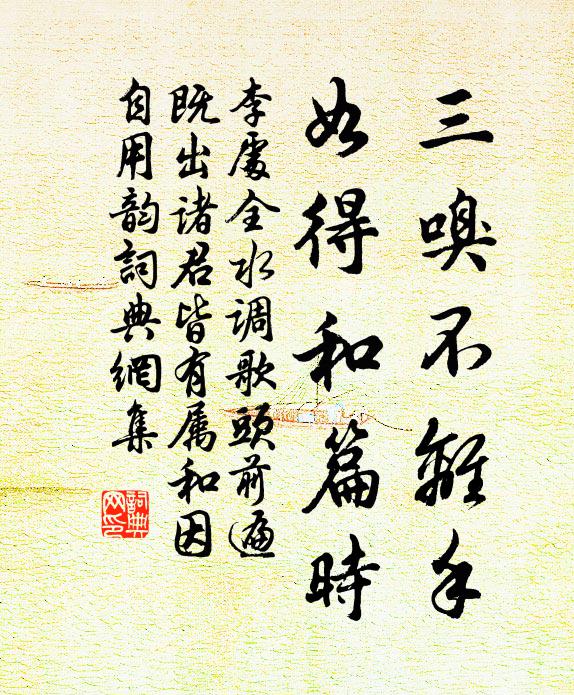 三嗅不離手
如得和篇時
李處全水调歌頭前遍
既出诸君皆有属和因
自用韵詞典網集
詞典网印